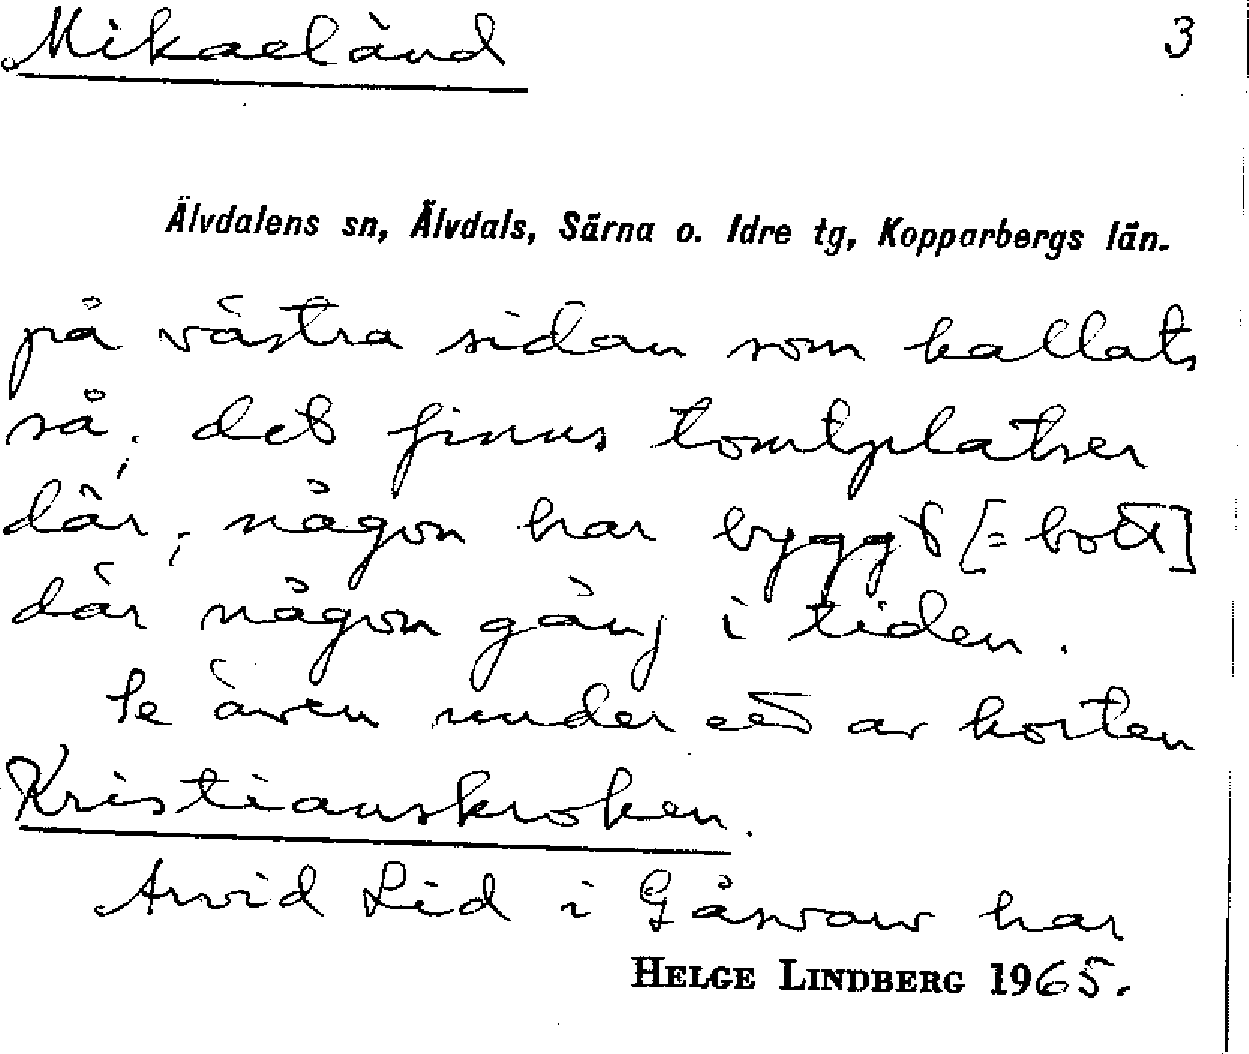 Mikaeländ 3
Älvdalens sn, Älvdals, Särna o. Idre tg, Kopparbergs län.
på västra sidan som kallats
så; det finns tomtplatser
där; någon har byggt [= bott]
där någon gång i tiden.
Se även under ett av korten
Kristianskroken.
Arvid Lid i Gåsvarv har
HELGE LINDBERG 1965.